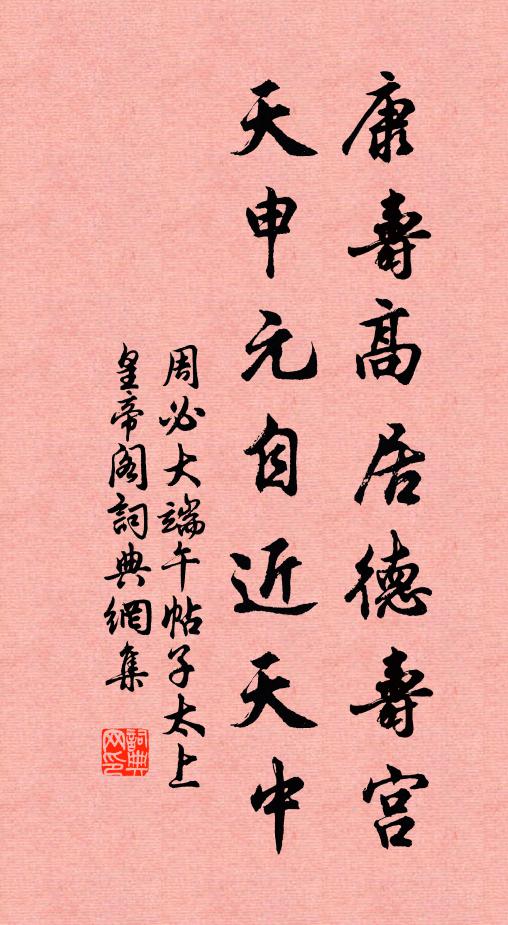 康壽高居德壽宮
天申元自近天中
周必大端午帖子太上
皇帝阁詞典網集
詞典
网印